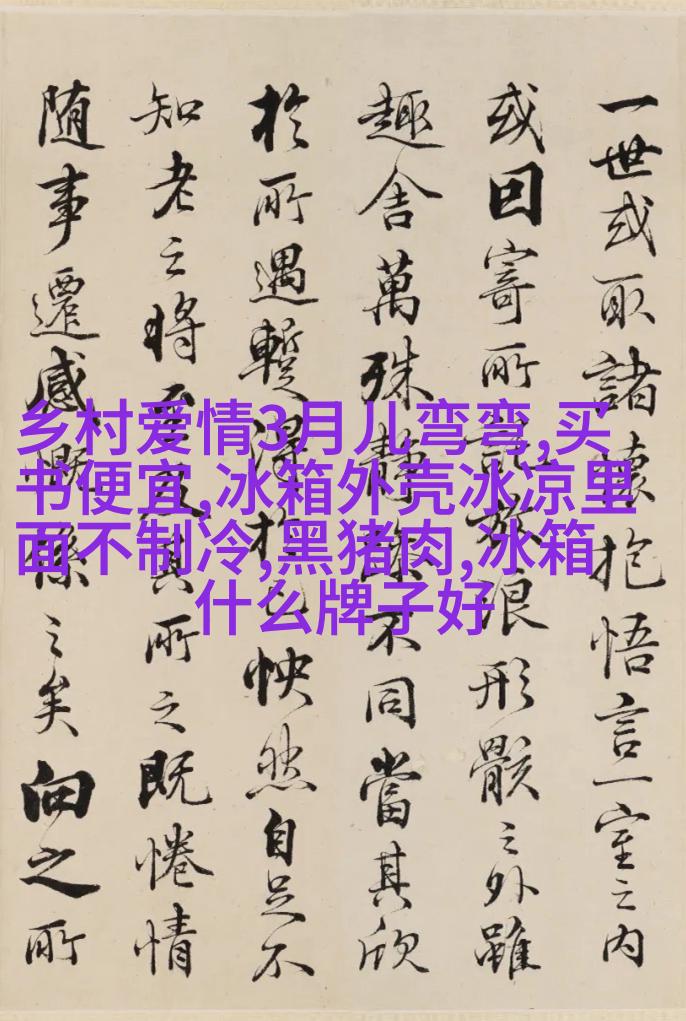 一世或取諸懷抱悟言一室之内
或因寄所託放浪形骸之外雖
趣舍萬殊靜躁不同當其欣
於所遇暫得於己怏然自足不
知老之將至及其所之既惓情
随事遷感慨係之矣向之所
乡村爱情3月儿弯弯,买
书便宜,冰箱外壳冰凉里
面不制冷,黑猪肉,冰箱
什么牌子好